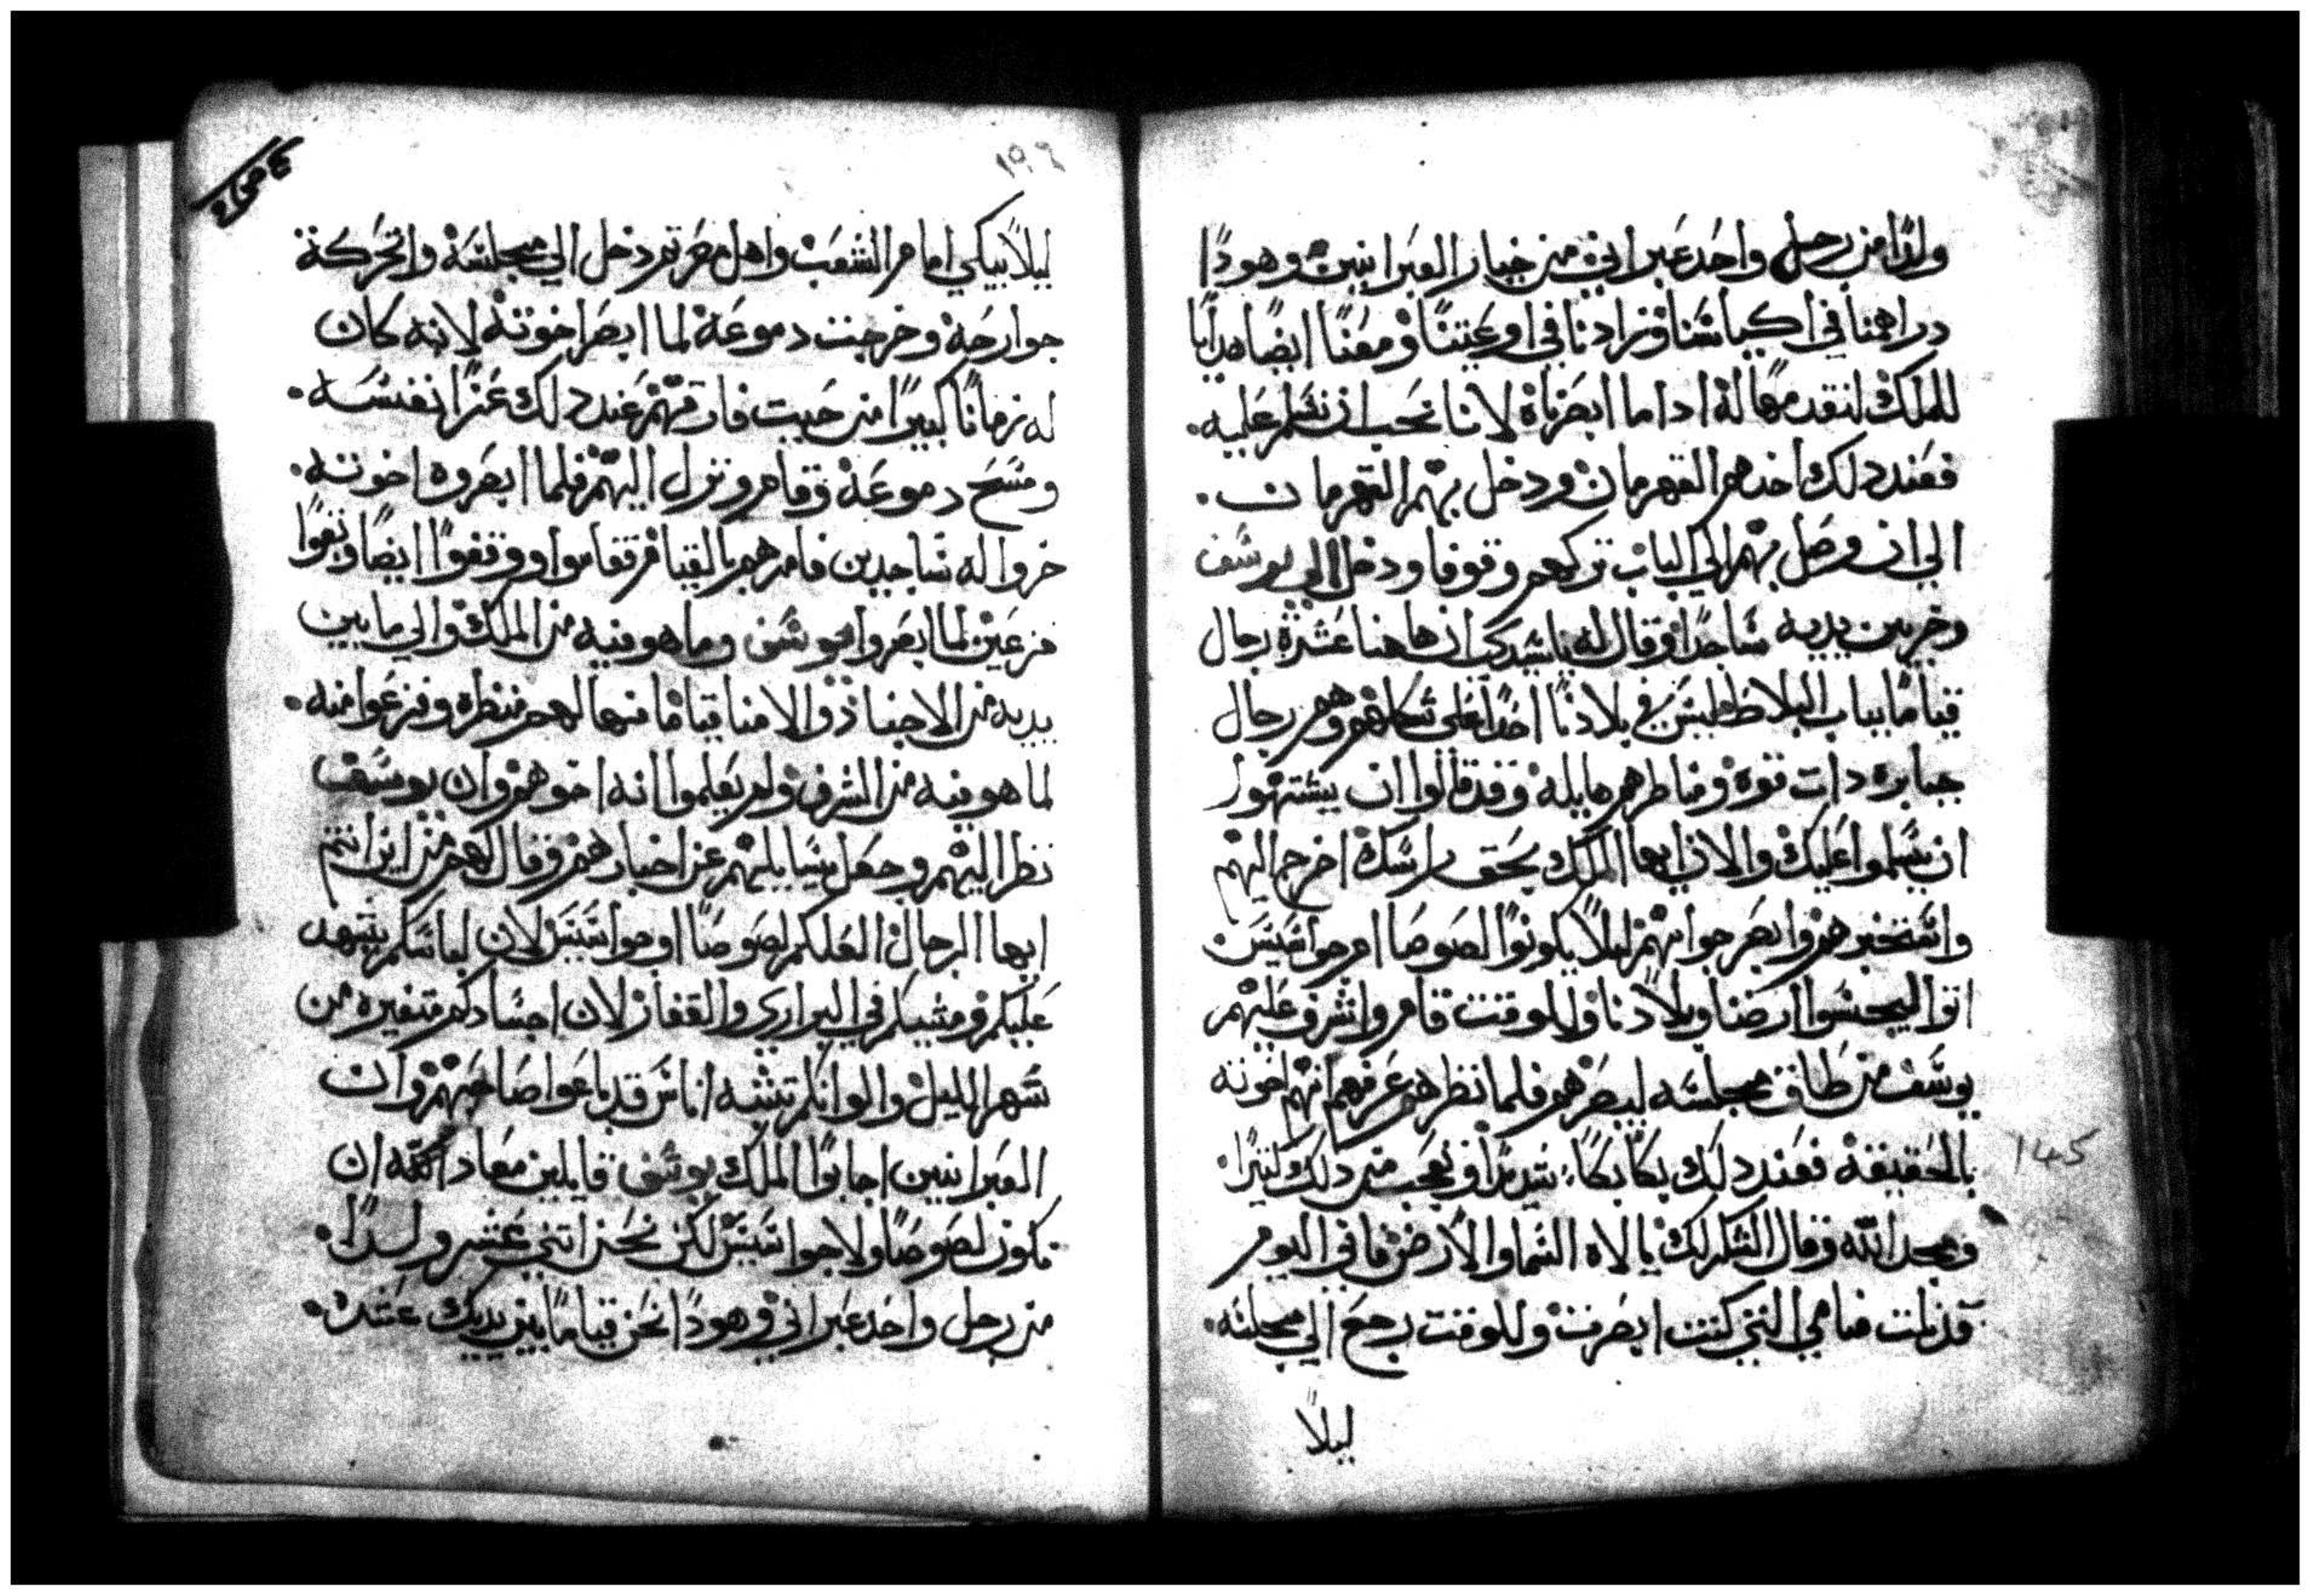 ولدًا من رجل واحد عبراني من خيار العبرانيين وهودًا
دراهمنا في اكياسنا وزادنا في اوعيتنا ومعنا ايضًا هدايا
للملك لنقدمها له ادا ما ابصرناه لاننا نحب ان نسلم عليه.
فعند دلك اخدهم القهرمان ودخل بهم القهرمان.
الي ان وصل بهم الي الباب تركهم وقوفا ودخل الي يوسف
وخر بين يديه ساجدًا وقال له يا سيدي ان هاهنا عشرة رجال
قيامًا بباب البلاط ليس في بلادنا احدًا علي شكلهم وهم رجال
جبابره دات قوة ومناظرهم هايله وقد قالوا ان يشتهوا
ان يسلموا عليك والان ايها الملك بحق راسك اخرج اليهم
واستخبرهم وابصر جوابهم ليلا يكونوا لصوصا ام جواسيس
اتوا ليجسوا ارضنا وبلادنا وللوقت قام واشرف عليهم
يوسف من طاق مجلسه ليبصرهم فلما نظرهم عرفهم انهم اخوته
بالحقيقة فعند دلك بكا بكاً شديدًا وتعجب من دلك كتيرًا
ومجد الله وقال الشكر لك يا الاه السما والارض فاني اليوم
قد نلت منامي التي كنت ابصرت وللوقت رجع الي مجلسه.
ليلاً
١٤٥
١٩٤
ليلاً يبكي امام الشعب واهل مصر تم دخل الي مجلسه واتحركة
جوارحه وخرجت دموعه لما ابصر اخوته لانه كان
له زمانًا كبيرًا من حيت فارقهم عند دلك عزا نفسه.
ومسح دموعه وقام ونزل اليهم فلما ابصروه اخوته.
خروا له ساجدين فامرهم بالقيام فقاموا ووقفوا ايضًا وبقوا
فزعين لما ابصروا يوسف وما هو فيه من الملك والي ما بين
يديه من الاجناد والامنا قيامًا فهالهم منظره وفزعوا منه.
لما هو فيه من الشرف ولم يعلموا انه اخوهم وان يوسف
نظر اليهم وجعل يسايلهم عن اخبارهم وقال لهم من اين انتم
ايها الرجال لعلكم لصوصًا او جواسيس لان لباسكم يشهد
عليكم ومشيكم في البراري والقفار لان اجسادكم متغيره من
سهر الليل والوانكم تشبه اناس قد باعوا صاحبهم وان
العبرانيين اجابوا الملك يوسف قايلين معاد الله ان
نكون لصوصًا ولا جواسيس لكن نحن اتني عشر ولدًا.
من رجل واحد عبراني وهودًا نحن قيامًا بين يديك عشرة.